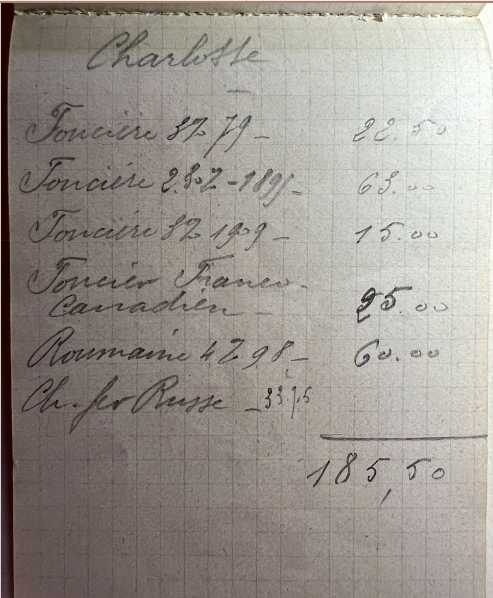 Charlotte
Foncière 3% 79 - 22.50
Foncière 2.80% - 1895 - 63.00
Foncière 3% 1909 - 15.00
Foncier Franco-
Canadien - 25.00
Roumaine 4% 98 - 60.00
Ch. fer Russe - 33.75
185,50